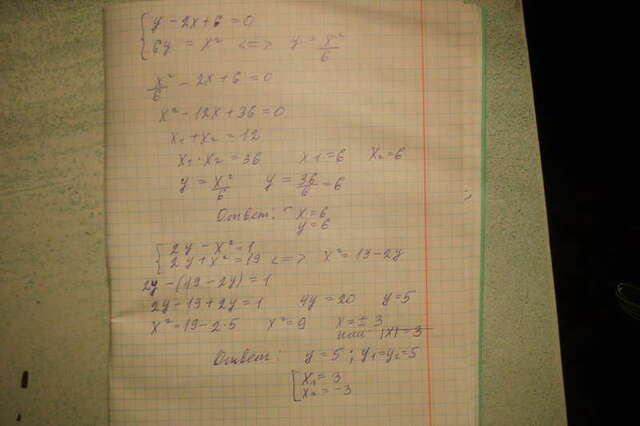 { y - 2x + 6 = 0
6y = x² <=> y = x²/6
x²/6 - 2x + 6 = 0
x² - 12x + 36 = 0
x₁ + x₂ = 12
x₁ · x₂ = 36 x₁ = 6 x₂ = 6
y = x²/6 y = 36/6 = 6
Ответ: x = 6
y = 6
{ 2y - x² = 1
2y + x² = 19 <=> x² = 19 - 2y
2y - (19 - 2y) = 1
2y - 19 + 2y = 1 4y = 20 y = 5
x² = 19 - 2·5 x² = 9 x = ± 3
или |x| = 3
Ответ: y = 5 ; y₁ = y₂ = 5
[ x₁ = 3
x₂ = -3